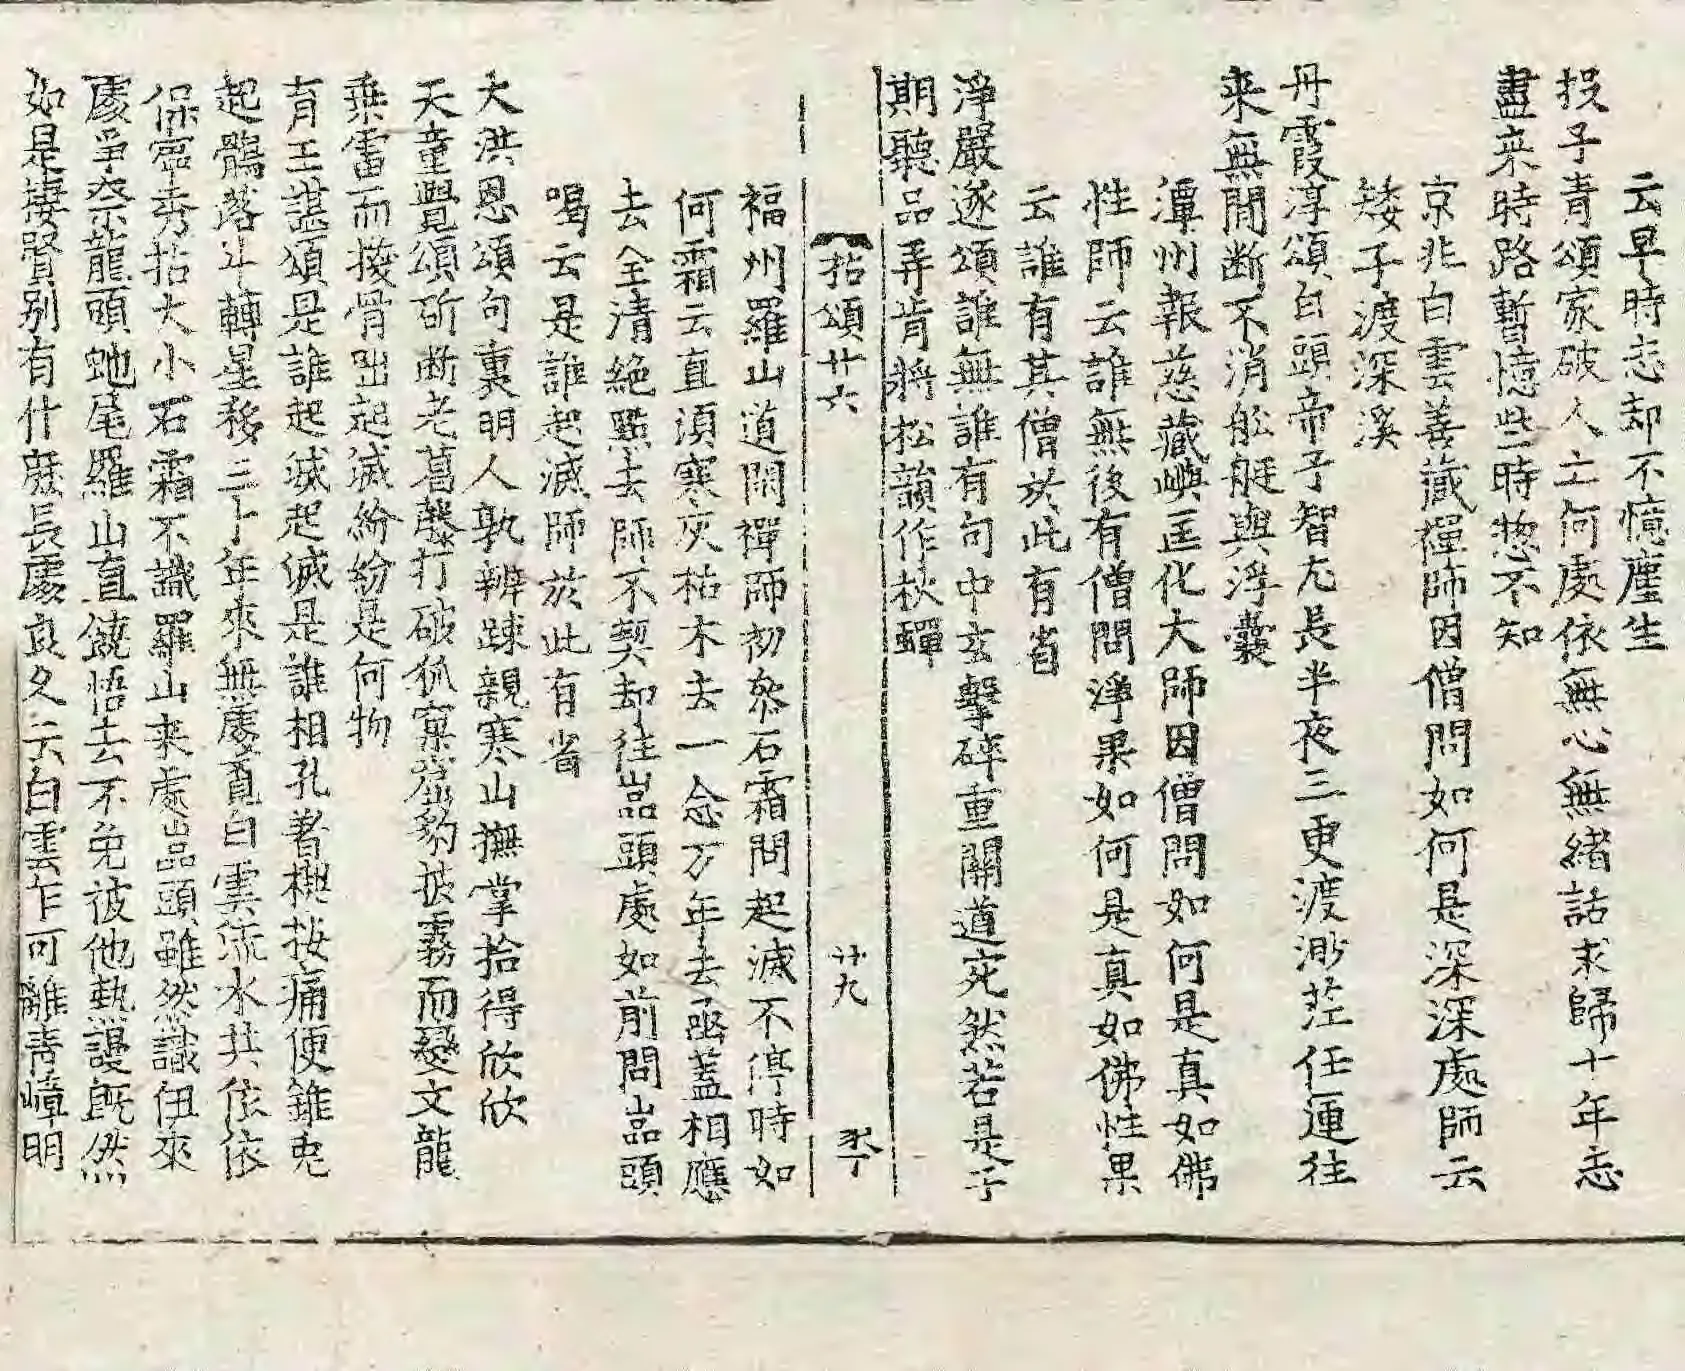 云早時忘却不憶塵生
投子青頌家破人亡何處依無心無緒話求歸十年忘
盡来時路暫憶些時惣不知
京兆白雲善藏禪師因僧問如何是深深處師云
矮子渡深溪
丹霞淳頌白頭帝子智尤長半夜三更渡渺茫任運往
来無間断不消舩艇與浮囊
潭州報慈藏嶼匡化大師因僧問如何是真如佛
性師云誰無後有僧問淨果如何是真如佛性果
云誰有其僧於此有省
淨嚴遂頌誰無誰有句中玄擊碎重關道宛然若是子
期聽品弄肯將松韻作秋蟬
拈頌廿六 廿九
福州羅山道閑禪師初叅石霜問起滅不停時如
何霜云直須寒灰枯木去一念万年去凾蓋相應
去全清絶點去師不契却往嵓頭處如前問嵓頭
喝云是誰起滅師於此有省
大洪恩頌句裏明人孰辨踈親寒山撫掌拾得欣欣
天童覺頌斫断老葛藤打破狐窠窟豹披霧而變文龍
乗雷而換骨咄起滅紛紛是何物
育王諶頌是誰起滅起滅是誰相孔著楔按痛便錐兎
起鶻落斗轉星移三十年來無處覔白雲流水共依依
保寧秀拈大小石霜不識羅山来處嵓頭雖然識伊來
處爭奈龍頭虵尾羅山直饒悟去不免被他熱謾既然
如是棲賢别有什麽長處良久云白雲乍可離青嶂明